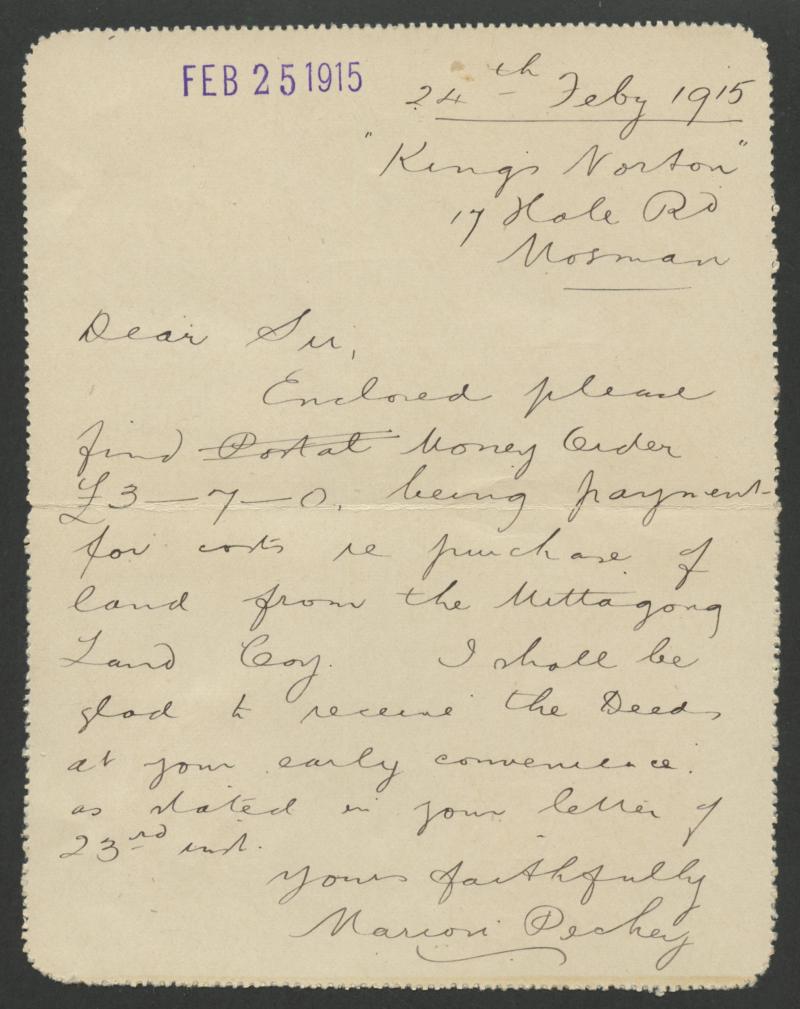 FEB 25 1915
24th Feby 1915
"Kings Norton"
17 Hale Rd
Mosman
Dear Sir,
Enclosed please
find Postal Money Order
£3-7-0, being payment
for costs re purchase of
land from the Mittagong
Land Coy. I shall be
glad to receive the Deeds
at your early convenience.
as stated in your letter of
23rd inst.
Yours faithfully
Marion Pechey